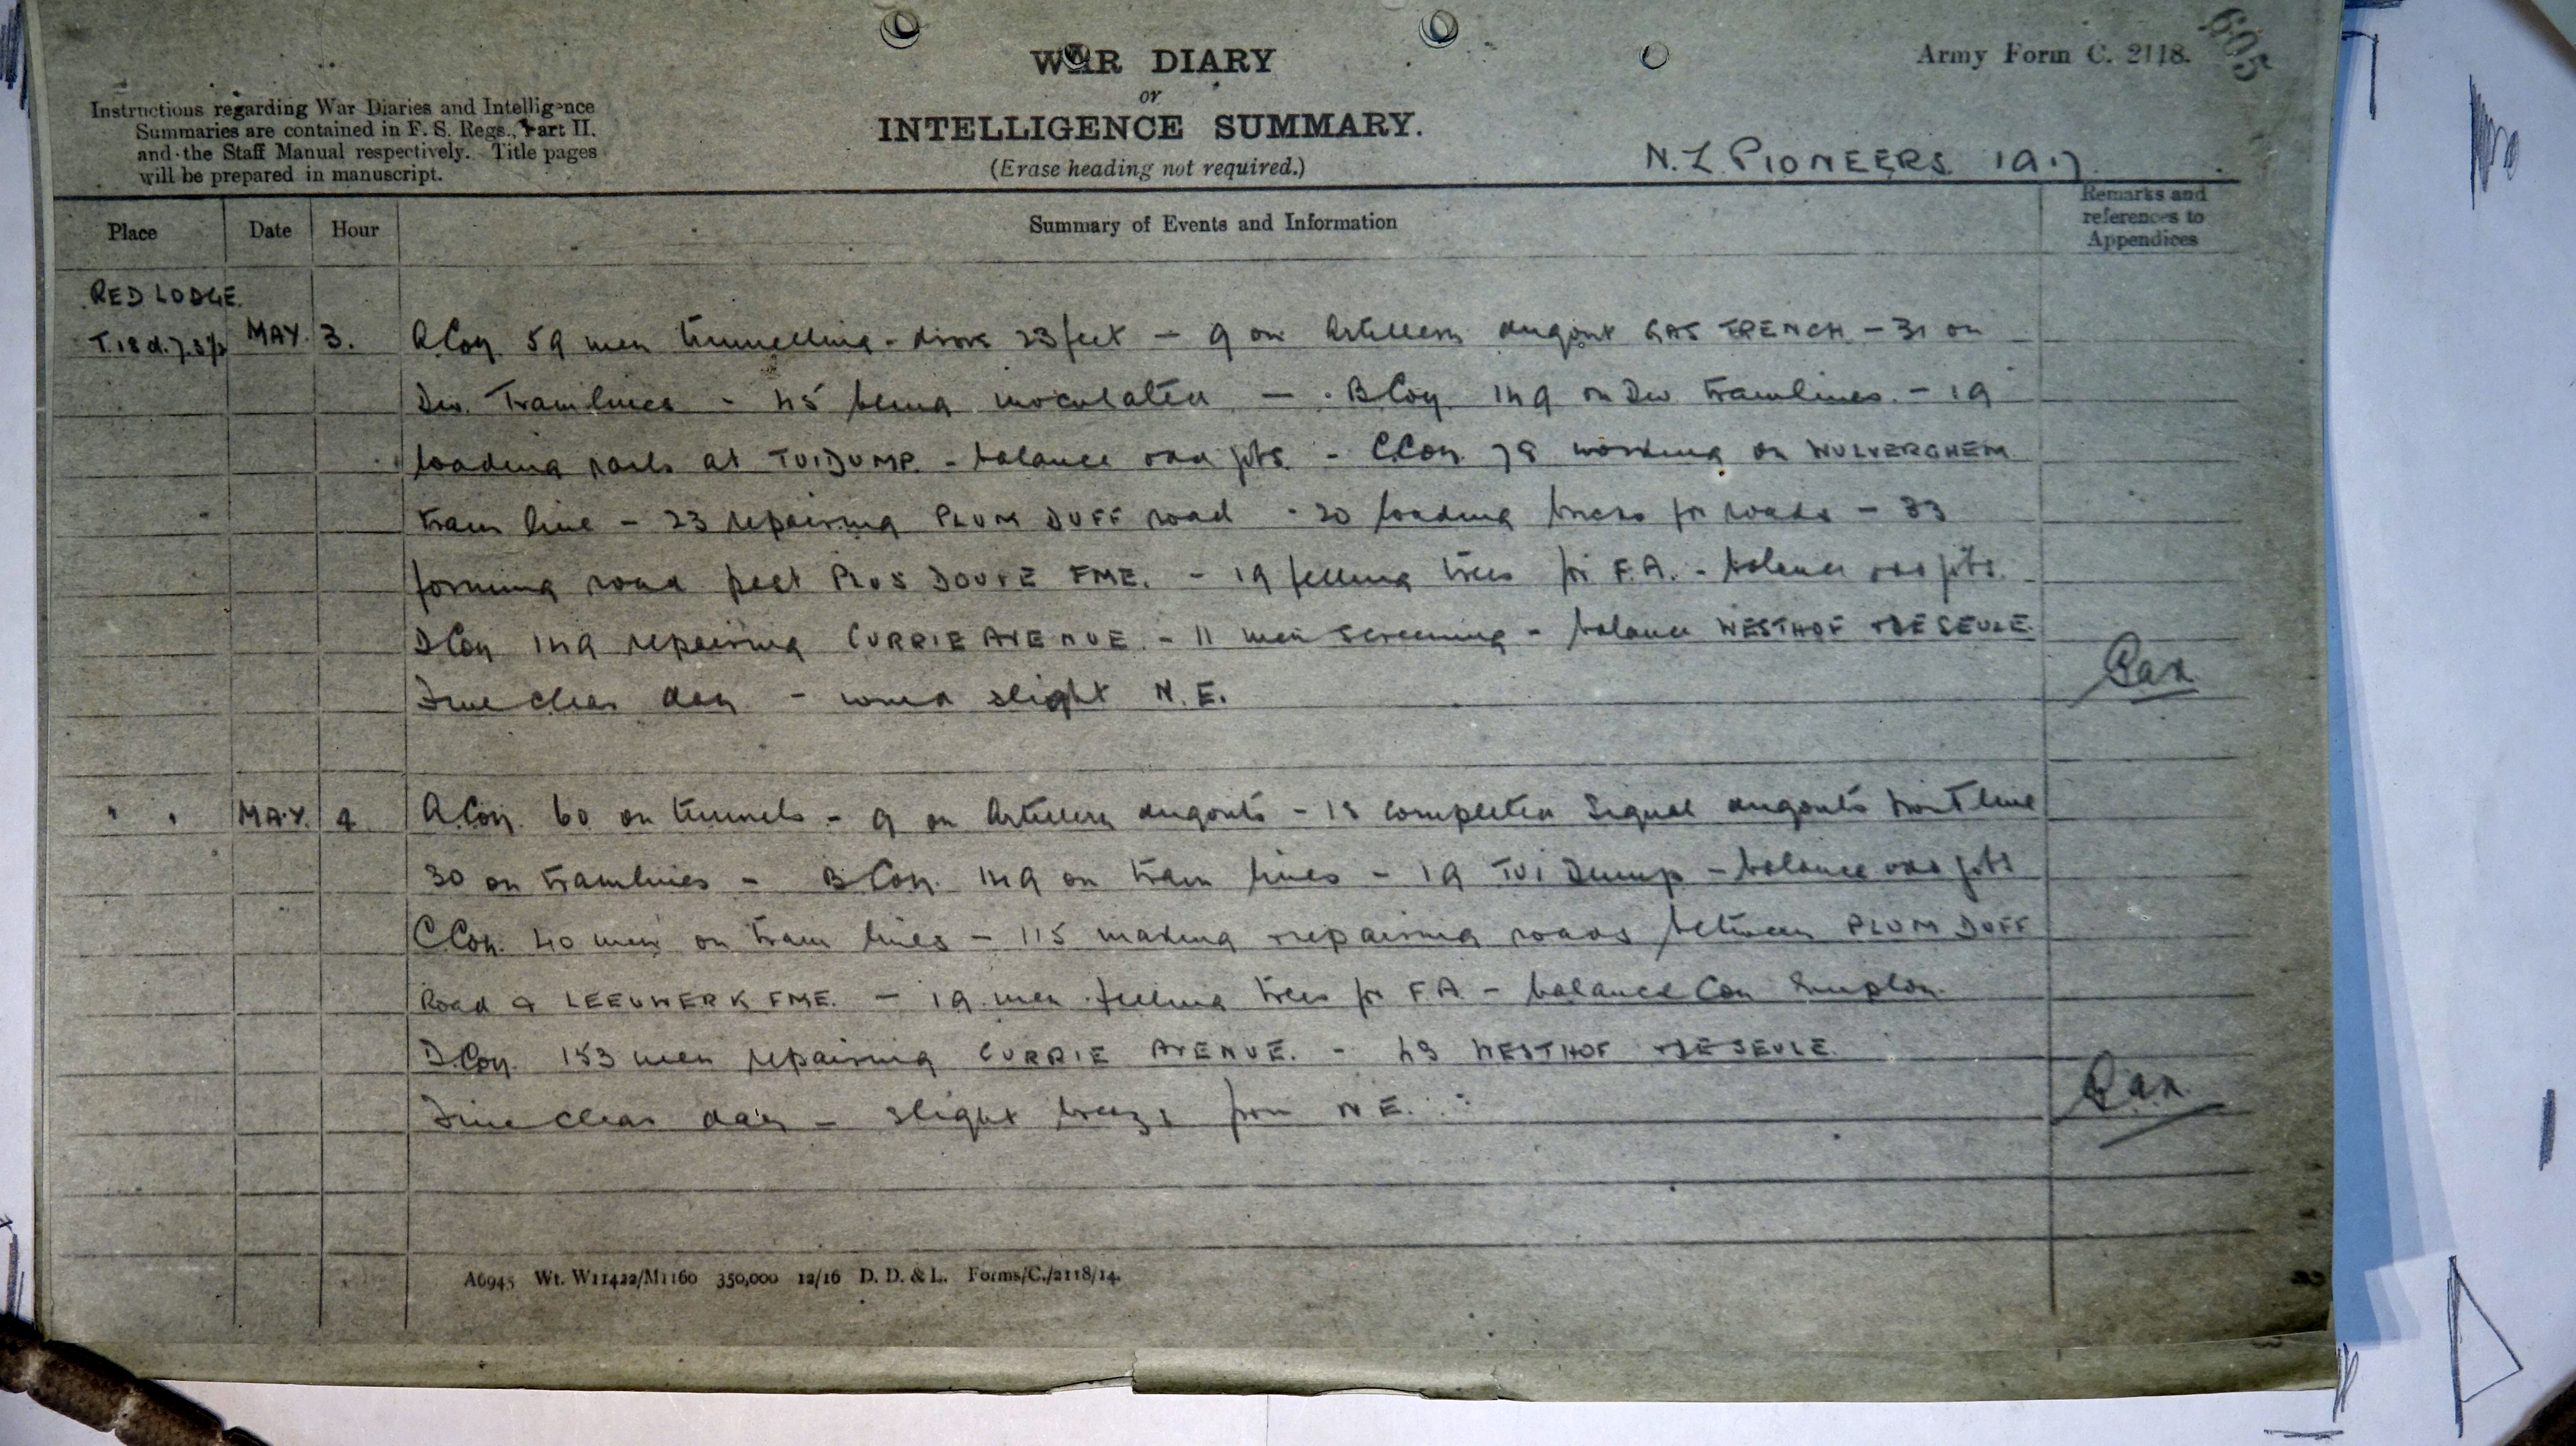 WAR DIARY
or
INTELLIGENCE SUMMARY.
(Erase heading not required.)
Army Form C. 2118.
605
Instructions regarding War Diaries and Intelligence
Summaries are contained in F. S. Regs., Part II.
and the Staff Manual respectively. Title pages
will be prepared in manuscript.
N.Z. PIONEERS 1917
Place Date Hour Summary of Events and Information Remarks and references to Appendices
RED LODGE
T.18.d. MAY. 3. A Coy. 59 men tunnelling - drove 23 feet - 9 on Artillery dugout GAS TRENCH - 31 on
Div. Tramlines - 45 being inoculated - B Coy. 149 on Div tramlines. - 19
loading rails at TUI DUMP. - balance odd jobs - C Coy. 78 working on WULVERGHEM
tram line - 23 repairing PLUM DUFF road - 20 loading bricks for roads - 33
forming road past PLUS DOUVE FME. - 19 felling trees for F.A. - balance odd jobs.
D Coy 149 repairing CURRIE AVENUE. - 11 men screening - balance WESTHOF + DE SEULE.
Fine clear day - wind slight N.E.
" " MAY. 4 A Coy. 60 on tunnels - 9 on Artillery dugouts - 18 completed Signal dugouts front line
30 on tramlines - B Coy. 149 on tram lines - 19 TUI Dump - balance odd jobs
C Coy. 40 men on tram lines - 115 making + repairing roads between PLUM DUFF
Road & LEEUWERK FME. - 19 men felling trees for F.A. - balance Coy
D Coy. 153 men repairing CURRIE AVENUE. - 43 WESTHOF + DE SEULE.
Fine clear day - slight breeze from N.E.
A6945 Wt. W11422/M1160 350,000 12/16 D. D. & L. Forms/C./2118/14.